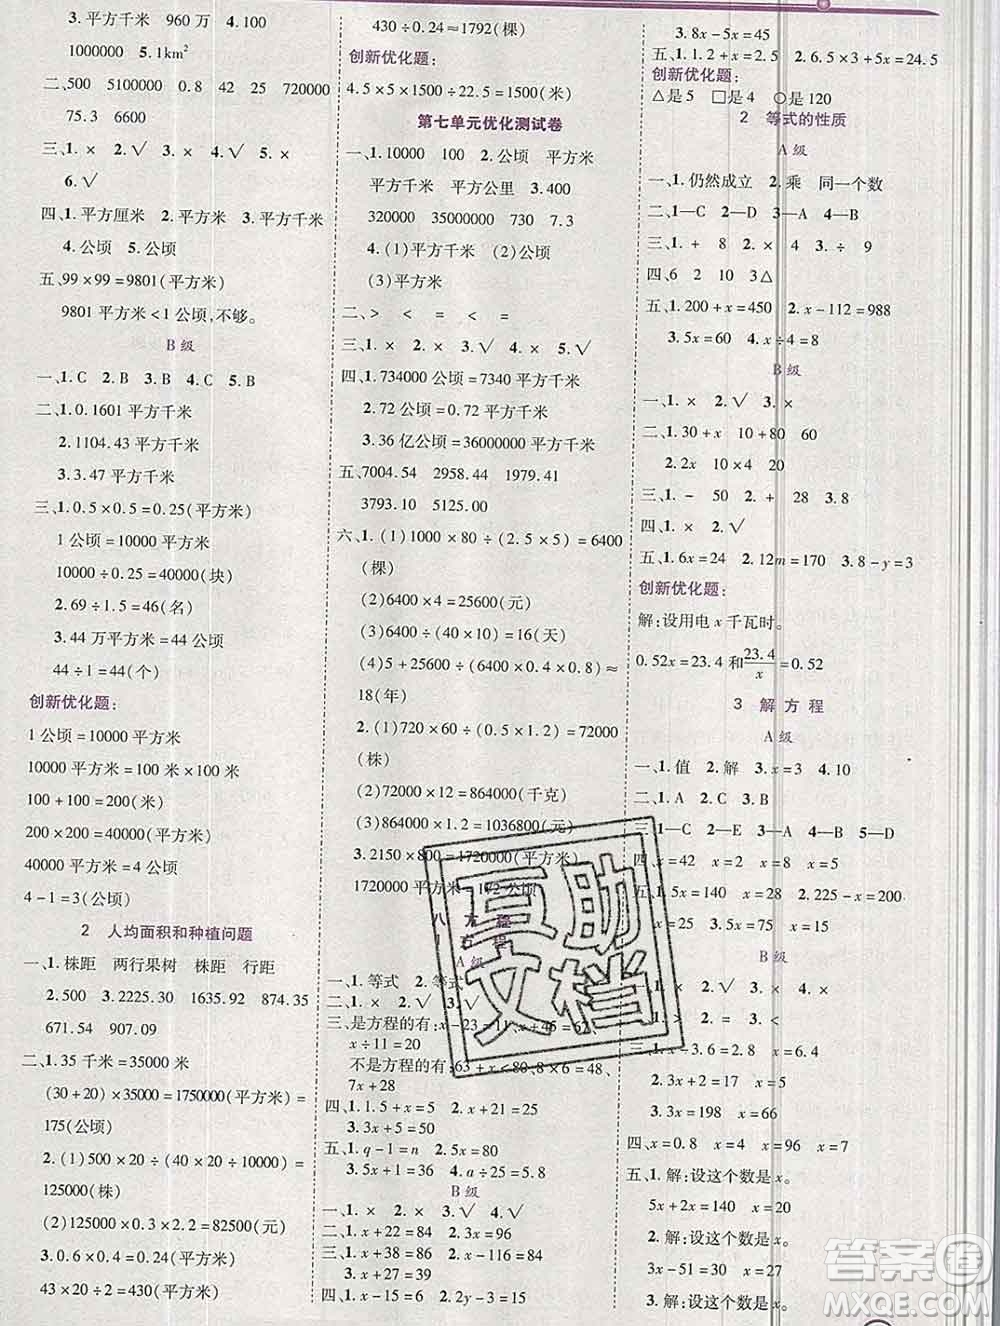 3.平方千米 960万 4.100
1000000 5.1km²
二、500 5100000 0.8 42 25 720000
75.3 6600
三、1.× 2.√ 3.√ 4.× 5.×
6.√
四、1.平方厘米 2.平方米 3.平方千米
4.公顷 5.公顷
五、99×99=9801(平方米)
9801平方米<1公顷,不够。
B级
一、1.C 2.B 3.B 4.C 5.B
二、1.0.1601平方千米
2.1104.43平方千米
3.3.47平方千米
三、1.0.5×0.5=0.25(平方米)
1公顷=10000平方米
10000÷0.25=40000(块)
2.69÷1.5=46(名)
3.44万平方米=44公顷
44÷1=44(个)
创新优化题:
1公顷=10000平方米
10000平方米=100米×100米
100+100=200(米)
200×200=40000(平方米)
40000平方米=4公顷
4-1=3(公顷)
2 人均面积和种植问题
一、1.株距 两行果树 株距 行距
2.500 3.2225.30 1635.92 874.35
671.54 907.09
二、1.35千米=35000米
(30+20)×35000=1750000(平方米)=
175(公顷)
2.(1)500÷20×(40×20÷10000)=
125000(株)
(2)125000×0.3×2.2=82500(元)
3.0.6×0.4=0.24(平方米)
43×20÷2=430(平方米)
430÷0.24≈1792(棵)
创新优化题:
4.5×5×1500÷22.5=1500(米)
第七单元优化测试卷
一、1.10000 100 2.公顷 平方米
平方千米 平方公里 3.400
320000 35000000 730 7.3
4.(1)平方千米 (2)公顷
(3)平方米
二、> < = < =
三、1.× 2.× 3.√ 4.√ 5.√
四、1.734000公顷=7340平方千米
2.72公顷=0.72平方千米
3.36亿公顷=36000000平方千米
五、7004.54 2958.46 1979.41
3793.10 5125.00
六、1.(1)1000×80÷(2.5×5)=6400
(棵)
(2)6400×4=25600(元)
(3)6400÷(40×10)=16(天)
(4)5+25600÷(6400×0.4×0.8)≈
18(年)
2.(1)720×60÷(0.5×1.2)=72000
(株)
(2)72000×12=864000(千克)
(3)864000×1.2=1036800(元)
3.2150×800=1720000(平方米)
1720000平方米=172公顷
八 方程
1 方程
A级
一、1.等式 2.等式
二、1.× 2.× 3.√ 4.√
三、是方程的有:x-23=11、x+45=62、
x÷11=20
不是方程的有:63+x<80、8×6=48、
7x+28
四、1.1.5+x=5 2.x+21=54
3.3x+5=50
五、1.q-1=n 2.5x=80
3.5x+1=21 4.a÷25=5.8
B级
一、1.√ 2.× 3.√ 4.√
二、1.x+22=84 2.3x=96
三、1.x+38=62 2.x-116=84
3.4x+20=42
四、1.x-15=6 2.4x-3x=15
3.8x-5x=45
五、1.1.2+x=2.5 2.6.5×3+5x=24.5
创新优化题:
△是5 □是4 ○是120
2 等式的性质
A级
一、1.仍然成立 2.乘 同一个数
二、1—C 2—D 3—A 4—B
三、1.+ 8 2.- 4 3.× 4 4.÷ 9
四、6 2 10 3△
五、1.200+x=450 2.x-112=988
3.5x=60 4.x÷4=8
B级
一、1.× 2.√ 3.×
二、1.30+x 10+80 60
2.2x 10×4 20
三、1.- 50 2.+ 28 3.8
四、1.× 2.√
五、1.6x=24 2.12m=170 3.8-y=3
创新优化题:
解:设用电x千瓦时。
0.52x=23.4和23.4/x=0.52
3 解方程
A级
一、1.值 2.解 3.x=3 4.10
二、1.A 2.C 3.B
三、1—C 2—E 3—A 4—B 5—D
四、x=42 x=2 x=8 x=85
五、1.5x=140 x=28 2.225-x=200
x=25 3.5x=875 x=175
B级
一、1.√ 2.× 3.√ 4.×
二、1.> 2.= 3.<
三、1.x÷3.6=2 x=
2.3x=90 x=30
3.3x=198 x=66
四、x=0.8 x=4 x=96 x=7
五、1.解:设这个数是x。
5x+2x=140 x=20
2.解:设这个数是x。
3x-51=30 x=27
3.解:设这个数是x。
互助文档
答案圈
MXQE.COM